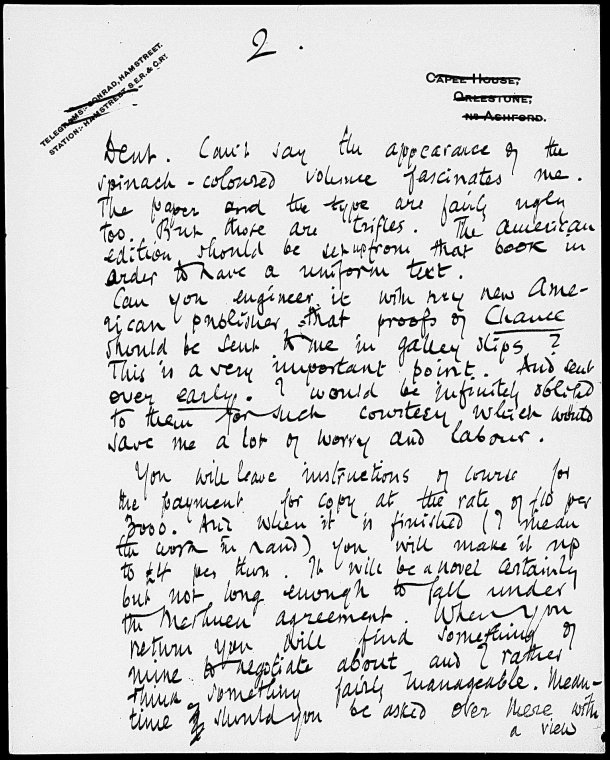 2.
TELEGRAMS:- CONRAD, HAMSTREET.
STATION:- HAMSTREET S.E.R. & C.RY
CAPEL HOUSE,
ORLESTONE,
NR ASHFORD.
Dent. Can't say the appearance of the
spinach-coloured volume fascinates me.
The paper and the type are fairly ugly
too. But those are trifles. The american
edition should be set up from that book in
order to have a uniform text.
Can you engineer it with my new Ame-
rican publisher, that proofs of Chance
should be sent to me in galley slips?
This is a very important point. And sent
over early. I would be infinitely obliged
to them for such courtesy which would
save me a lot of worry and labour.
You will leave instructions of course for
the payment for copy at the rate of £10 per
3000. And when it is finished (I mean
the work in hand) you will make it up
to £4 per thou. It will be a novel certainly
but not long enough to fall under
the Methuen agreement. When you
return you will find something of
mine to negotiate about and I rather
think something fairly manageable. Mean-
time should you be asked over there with
a view